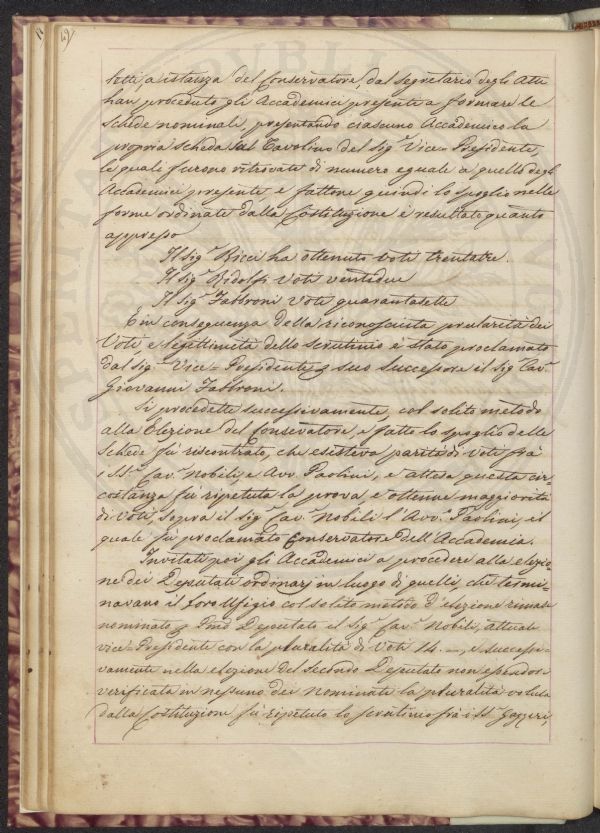 letti, a istanza del Conservatore, dal Segretario degli Atti
han proceduto gli Accademici presenti a formare le
schede nominali, presentando ciascuno Accademico la
propria scheda sul Tavolino del Sig.r Vice=Presidente,
le quali furono ritrovate di numero eguale a quello degli
Accademici presenti, e fattone quindi lo spoglio nelle
forme ordinate dalla Costituzione è resultato quanto
appresso
Il Sig.r Ricci ha ottenuto voti trentatre.
Il Sig.r Ridolfi Voti ventidue
Il Sig.r Fabbroni Voti quarantasette
E in conseguenza della riconosciuta pluralità dei
Voti e legittimità dello scrutinio è stato proclamato
dal Sig.r Vice=Presidente suo Successore il Sig.r Cav.r
Giovanni Fabbroni.
Si procedette successivamente, col solito metodo
alla Elezione del Conservatore, e fatto lo spoglio delle
schede fù riscontrato, che esisteva parità di voti frà
i SS.ri Cav.r Nobili, e Avv. Paolini, e attesa questa cir,,
costanza fù ripetuta la prova, e ottenne maggiorità
di voti, sopra il Sig.r Cav.r Nobili l'Avv.o Paolini, il
quale fù proclamato Conservatore dell'Accademia.
Invitati poi gli Accademici a procedere alla elezio,,
ne dei Deputati ordinarj in luogo di quelli, che termi,,
navano il loro Ufizio col solito metodo d'elezione rimase
nominato Deputato il Sig.r Cav.r Nobili, attuale
vice=Presidente con la pluralità di voti 14. _, e successi,,
vamente nella elezione del Secondo Deputato non essendosi
verificata in nessuno dei nominati la pluralità voluta
dalla Costituzione fù ripetuto lo scrutinio frà i SS.ri Gazzeri,